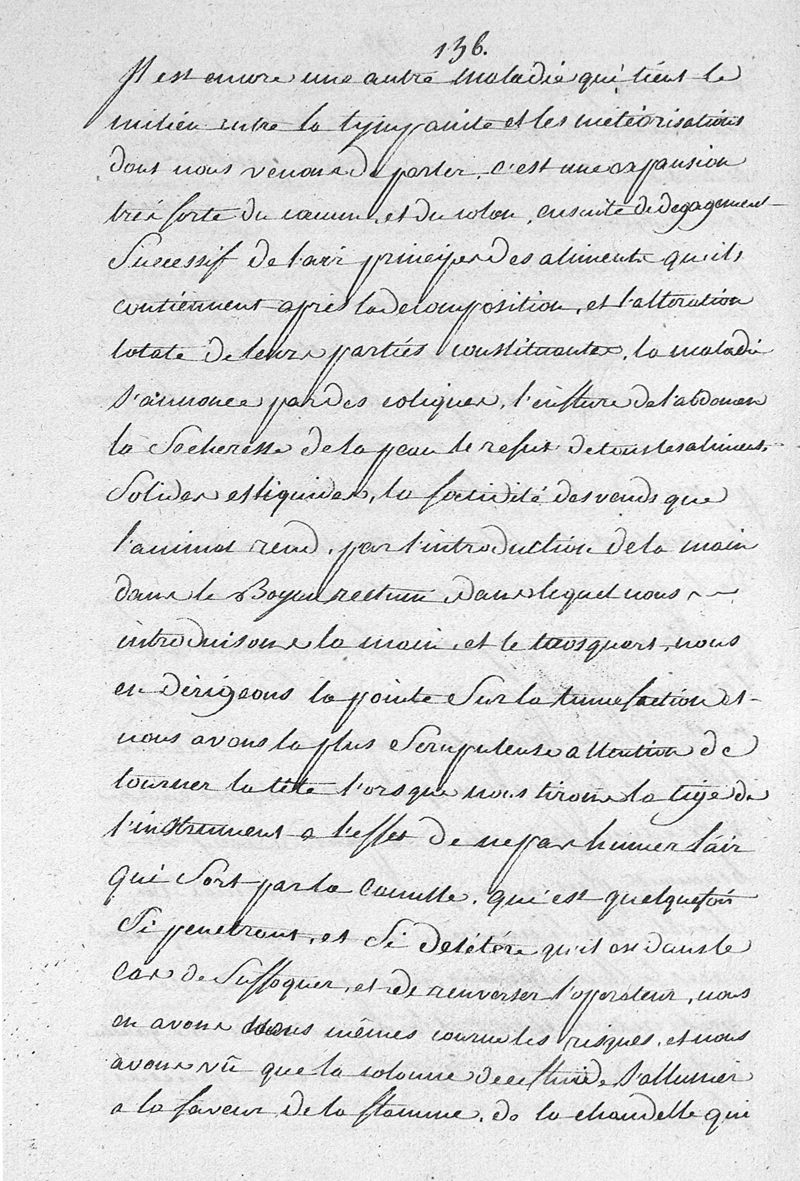 136.
Il est encore une autre maladie qui tient le
milieu entre la tympanite et les météorisations
dont nous venons de parler, c'est une expansion
très forte du cœcum, et du colon, ensuite de degagement
Successif de l'air principe des aliments qu'ils
contiennent après la decomposition, et l'alteration
totale de leurs parties constituantes, la maladie
s'annonce par des coliques, l'enflure de l'abdomen
la Secheresse de la peau le refus de tous les aliments
Solides et liquides, la fœtidité des vends que
l'animal rend, par l'introduction de la main
dans le Boyeu rectum dans lequel nous
introduisons la main, et le troisquarts, nous
en dirigeons la pointe Sur la tumefaction et
nous avons la plus Scrupuleuse attention de
tourner la tête l'orsque nous tirons la tige de
l'instrument a l'effet de ne pas humer l'air
qui Sort par la Canulle, qui est quelquefois
Si penetrant, et Si deletère qu'il est dans le
cas de Suffoquer, et de renverser l'operateur, nous
en avons nous mêmes courru les risques, et nous
avons vû que la colonne de ce fluide S'allumer
a la faveur de la flamme, de la chandelle qui